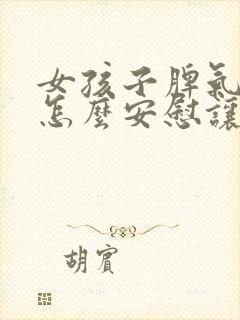 女孩子脾氣
怎麼安慰讓
胡賓